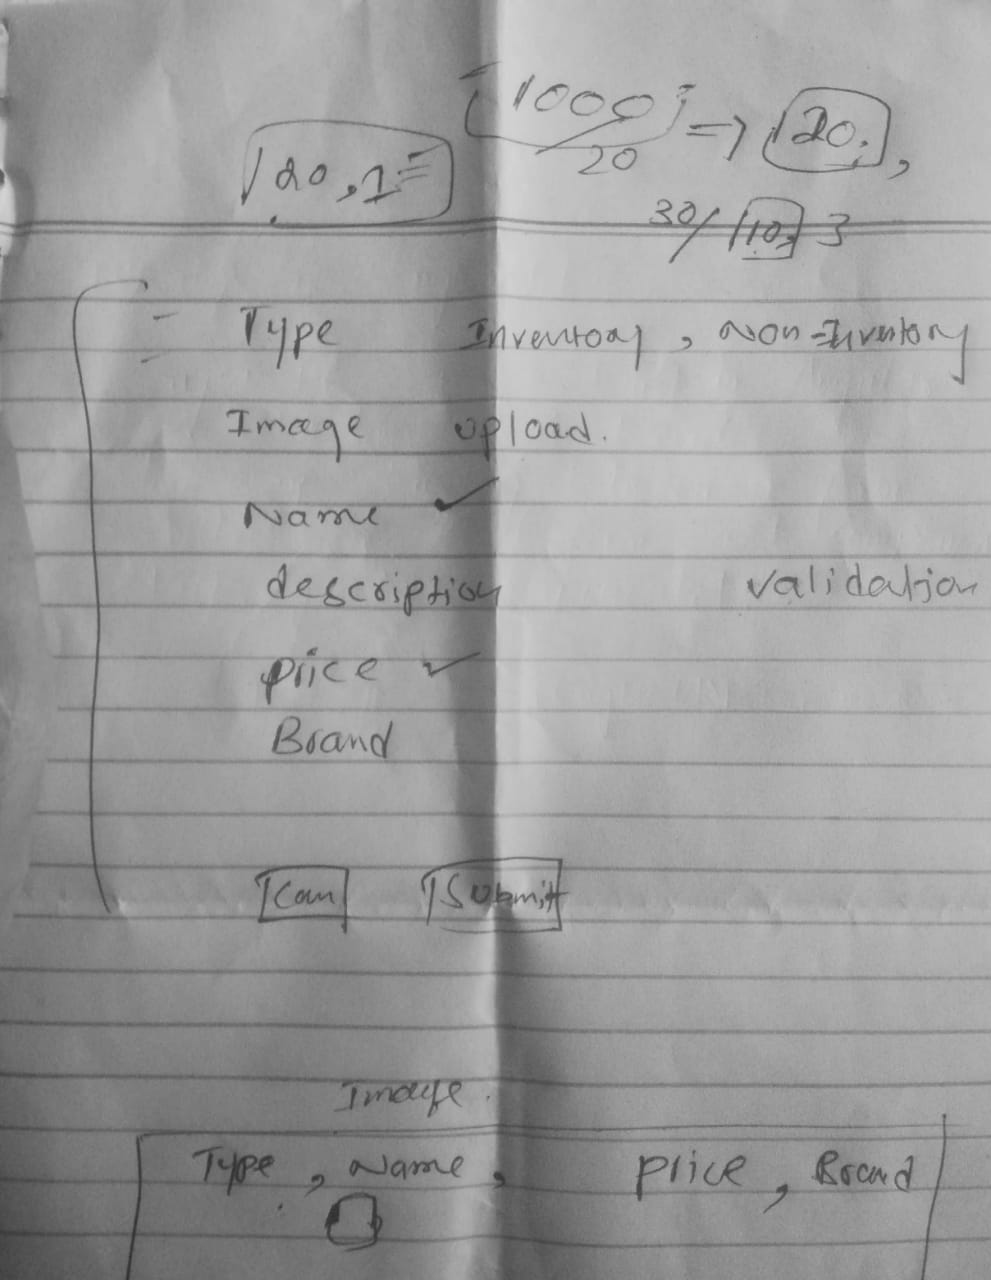 1000
20 => 20,
20, 1
30/ 10, 3
Type Inventory, Non-Inventory
Image upload.
Name ✓
description validation
price ✓
Brand
Can Submit
Image.
Type, Name, price, Brand